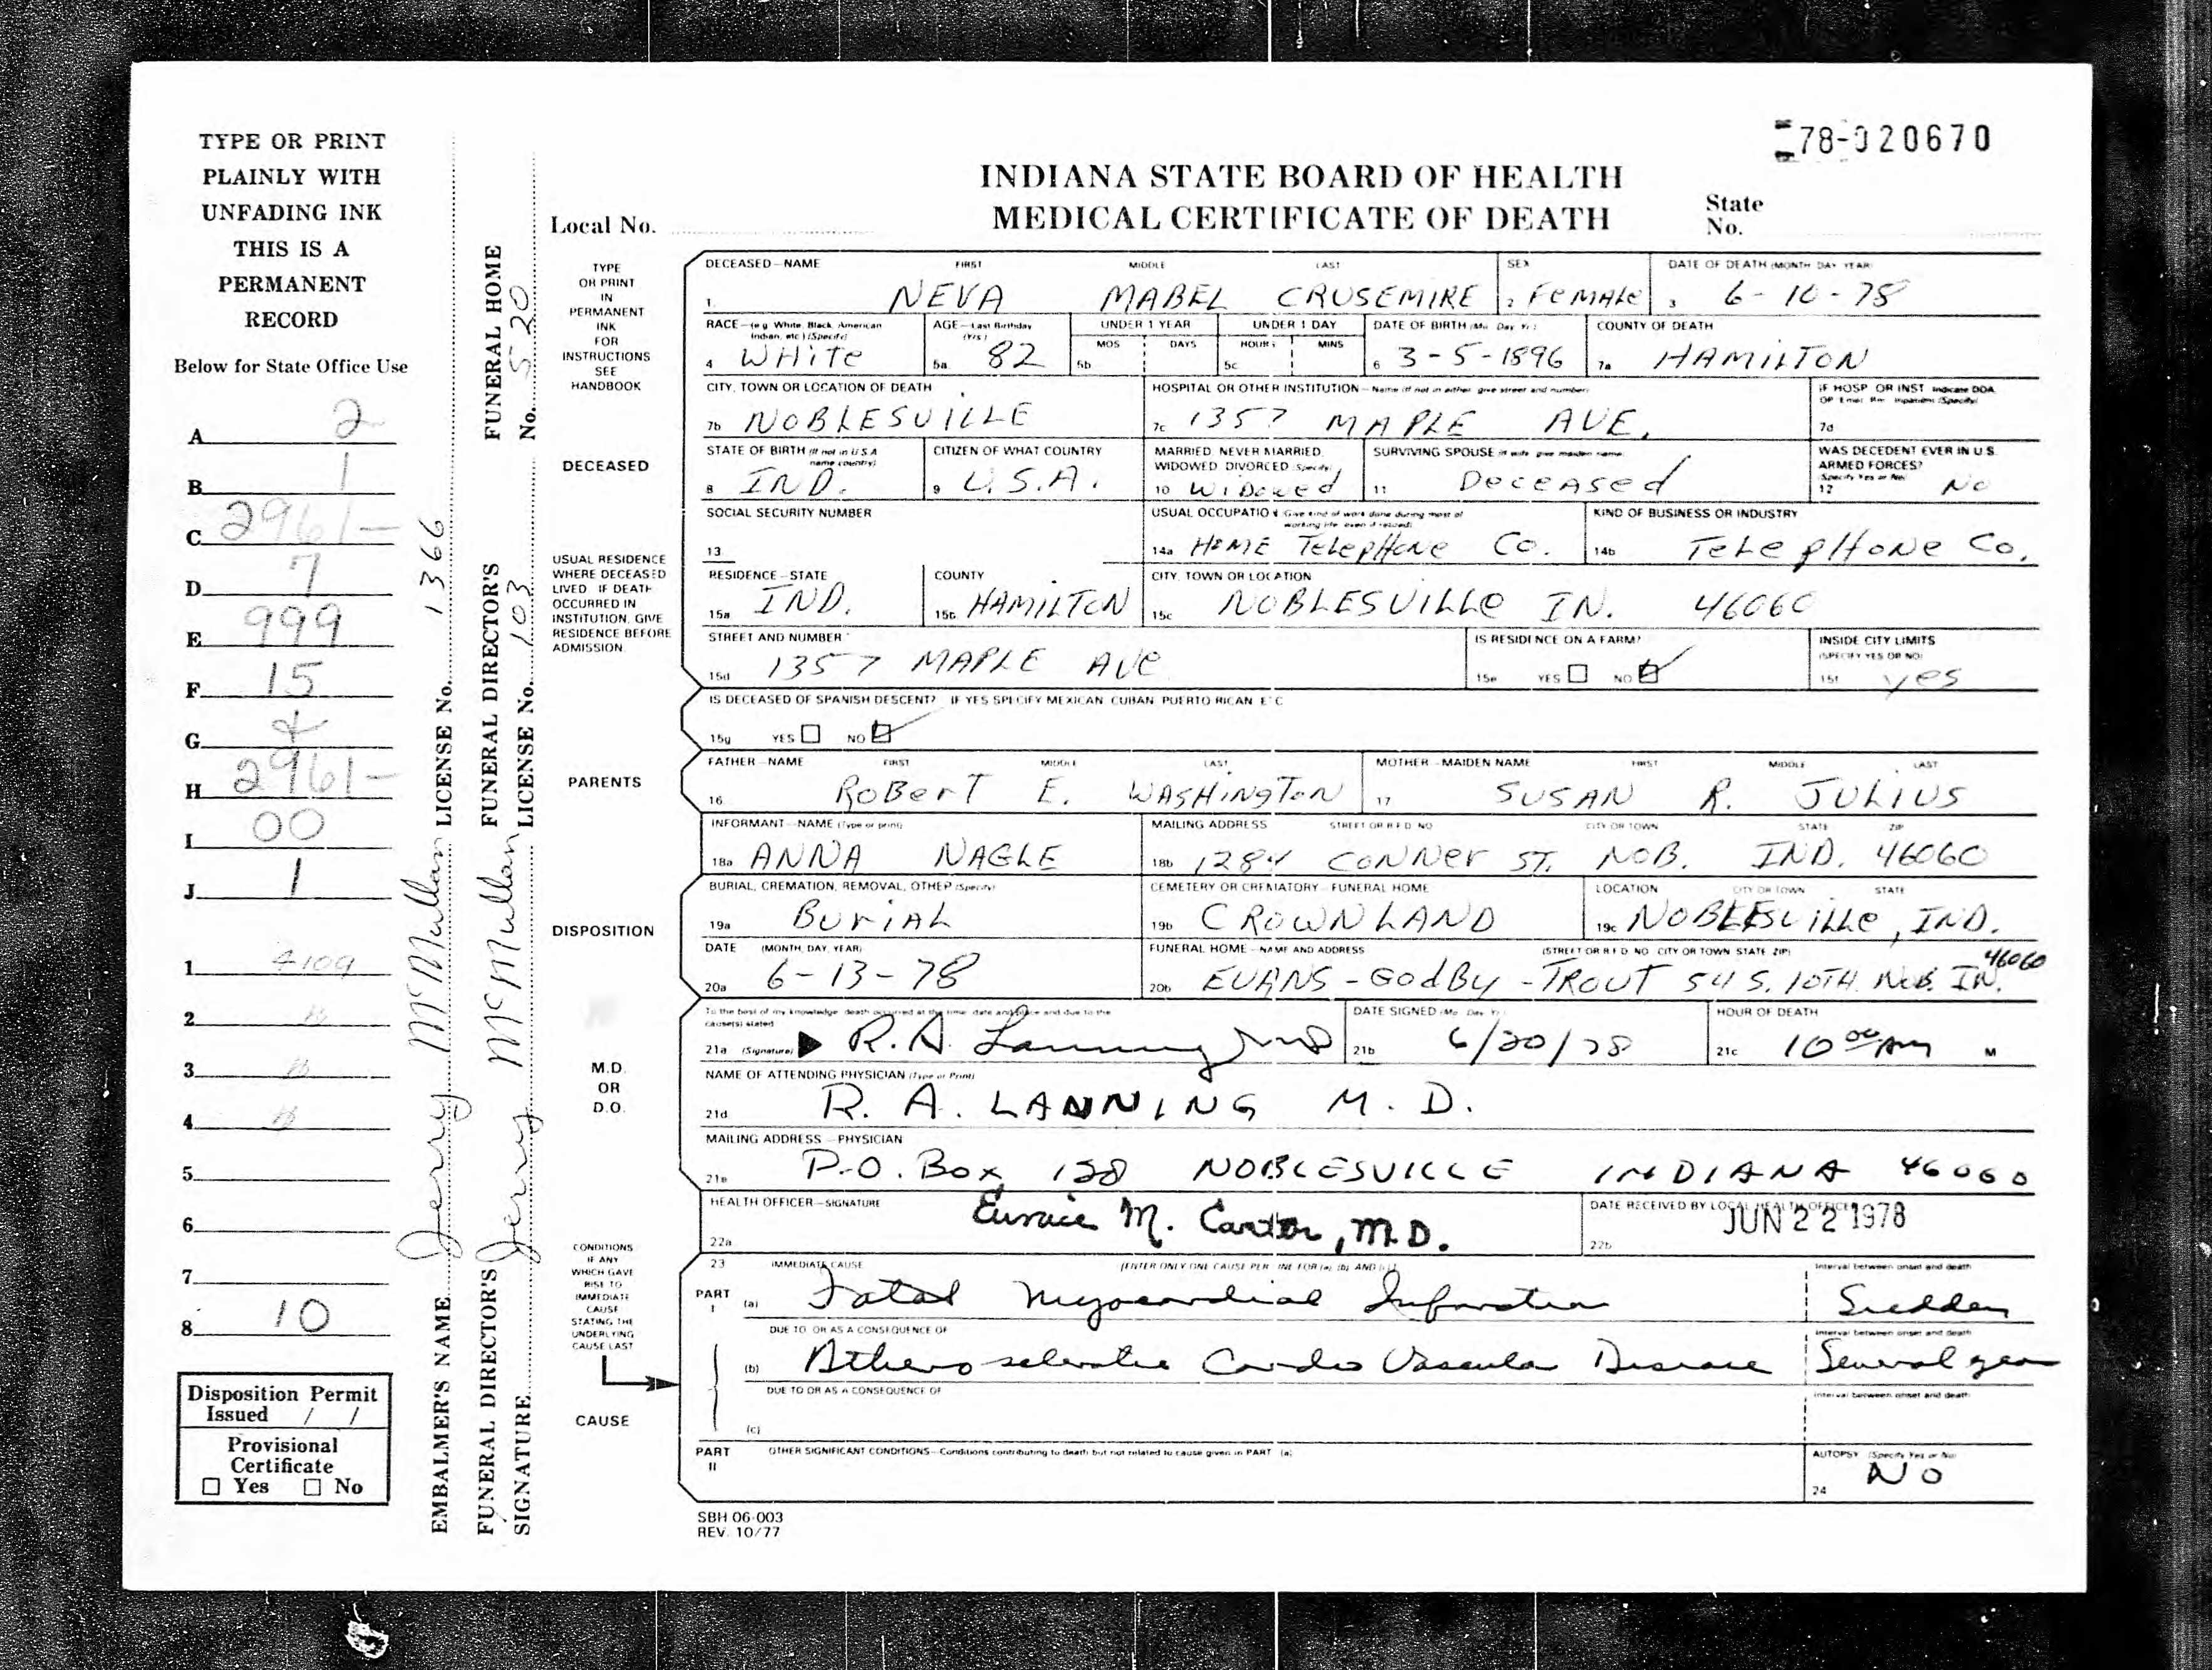 78-020670
INDIANA STATE BOARD OF HEALTH
MEDICAL CERTIFICATE OF DEATH
Local No.
State
No.
TYPE OR PRINT
PLAINLY WITH
UNFADING INK
THIS IS A
PERMANENT
RECORD
Below for State Office Use
A 2
B 1
C 2961-
D 7
E 999
F 15
G
H 2961-
I 00
J 1
1 4109
2
3
4
5
6
7
8 10
Disposition Permit
Issued / /
Provisional
Certificate
☐ Yes ☐ No
EMBALMER'S NAME Jerry McMullan LICENSE No. 1366
FUNERAL DIRECTOR'S SIGNATURE Jerry McMullan FUNERAL DIRECTOR'S LICENSE No. 103
FUNERAL HOME No. 520
TYPE
OR PRINT
IN
PERMANENT
INK
FOR
INSTRUCTIONS
SEE
HANDBOOK
DECEASED
DECEASED—NAME FIRST MIDDLE LAST SEX DATE OF DEATH (MONTH DAY YEAR)
1. NEVA MABEL CRUSEMIRE 2 FeMALe 3 6-10-78
RACE—(e.g. White, Black, American Indian, etc.) (Specify) AGE—Last Birthday (Yrs.) UNDER 1 YEAR UNDER 1 DAY DATE OF BIRTH (Mo. Day Yr.) COUNTY OF DEATH
MOS DAYS HOURS MINS
4 WHiTe 5a. 82 5b. 5c. 6 3-5-1896 7a HAMILTON
CITY, TOWN OR LOCATION OF DEATH HOSPITAL OR OTHER INSTITUTION—Name (If not in either, give street and number) IF HOSP. OR INST. Indicate DOA, OP Emer. Rm. Inpatient (Specify)
7b NOBLESVILLE 7c 1357 MAPLE AVE. 7d
STATE OF BIRTH (If not in U.S.A. name country) CITIZEN OF WHAT COUNTRY MARRIED, NEVER MARRIED, WIDOWED, DIVORCED (Specify) SURVIVING SPOUSE (If wife, give maiden name) WAS DECEDENT EVER IN U.S. ARMED FORCES? (Specify Yes or No)
8 IND. 9 U.S.A. 10 WiDowed 11 DeceASed 12 No
SOCIAL SECURITY NUMBER USUAL OCCUPATION (Give kind of work done during most of working life, even if retired) KIND OF BUSINESS OR INDUSTRY
13 14a HOME TelepHone Co. 14b TelepHoNe Co.
USUAL RESIDENCE
WHERE DECEASED
LIVED. IF DEATH
OCCURRED IN
INSTITUTION, GIVE
RESIDENCE BEFORE
ADMISSION.
RESIDENCE—STATE COUNTY CITY, TOWN OR LOCATION
15a IND. 15b HAMILTON 15c NOBLESVILLe IN. 46060
STREET AND NUMBER IS RESIDENCE ON A FARM? INSIDE CITY LIMITS (SPECIFY YES OR NO)
15d 1357 MAPLE AVe 15e YES ☐ NO ☑ 15f yes
IS DECEASED OF SPANISH DESCENT? IF YES SPECIFY MEXICAN, CUBAN, PUERTO RICAN, ETC
15g YES ☐ NO ☑
PARENTS
FATHER—NAME FIRST MIDDLE LAST MOTHER—MAIDEN NAME FIRST MIDDLE LAST
16 RoBerT E. WASHINgToN 17 SUSAN R. JULIUS
INFORMANT—NAME (Type or print) MAILING ADDRESS STREET OR R.F.D. NO. CITY OR TOWN STATE ZIP
18a ANNA NAGLE 18b 1284 CONNer ST. NOB. IND. 46060
DISPOSITION
BURIAL, CREMATION, REMOVAL, OTHER (Specify) CEMETERY OR CREMATORY—FUNERAL HOME LOCATION CITY OR TOWN STATE
19a BuriAL 19b CROWNLAND 19c NOBLESVILLe, IND.
DATE (MONTH, DAY, YEAR) FUNERAL HOME—NAME AND ADDRESS (STREET OR R.F.D. NO. CITY OR TOWN STATE ZIP)
46060
20a 6-13-78 20b EVANS-GodBy-TROUT 54 S. 10TH. NOB. IN.
M.D.
OR
D.O.
To the best of my knowledge, death occurred at the time, date and place and due to the cause(s) stated DATE SIGNED (Mo. Day Yr.) HOUR OF DEATH
21a (Signature) R.A. Lanning MD 21b 6/20/78 21c 10 00 AM M
NAME OF ATTENDING PHYSICIAN (Type or Print)
21d R. A. LANNING M.D.
MAILING ADDRESS—PHYSICIAN
21e P.O. Box 128 NOBLESVILLE INDIANA 46060
HEALTH OFFICER—SIGNATURE DATE RECEIVED BY LOCAL HEALTH OFFICER
22a Eunice M. Carter, M.D. 22b JUN 22 1978
CONDITIONS
IF ANY
WHICH GAVE
RISE TO
IMMEDIATE
CAUSE
STATING THE
UNDERLYING
CAUSE LAST
CAUSE
23 IMMEDIATE CAUSE (ENTER ONLY ONE CAUSE PER LINE FOR (a), (b), AND (c)) Interval between onset and death
PART I (a) Fatal Myocardial Infarction Sudden
DUE TO, OR AS A CONSEQUENCE OF Interval between onset and death
(b) Atherosclerotic Cardio Vascular Disease Several years
DUE TO OR AS A CONSEQUENCE OF Interval between onset and death
(c)
PART II OTHER SIGNIFICANT CONDITIONS—Conditions contributing to death but not related to cause given in PART I (a) AUTOPSY (Specify Yes or No)
24 No
SBH 06-003
REV. 10/77